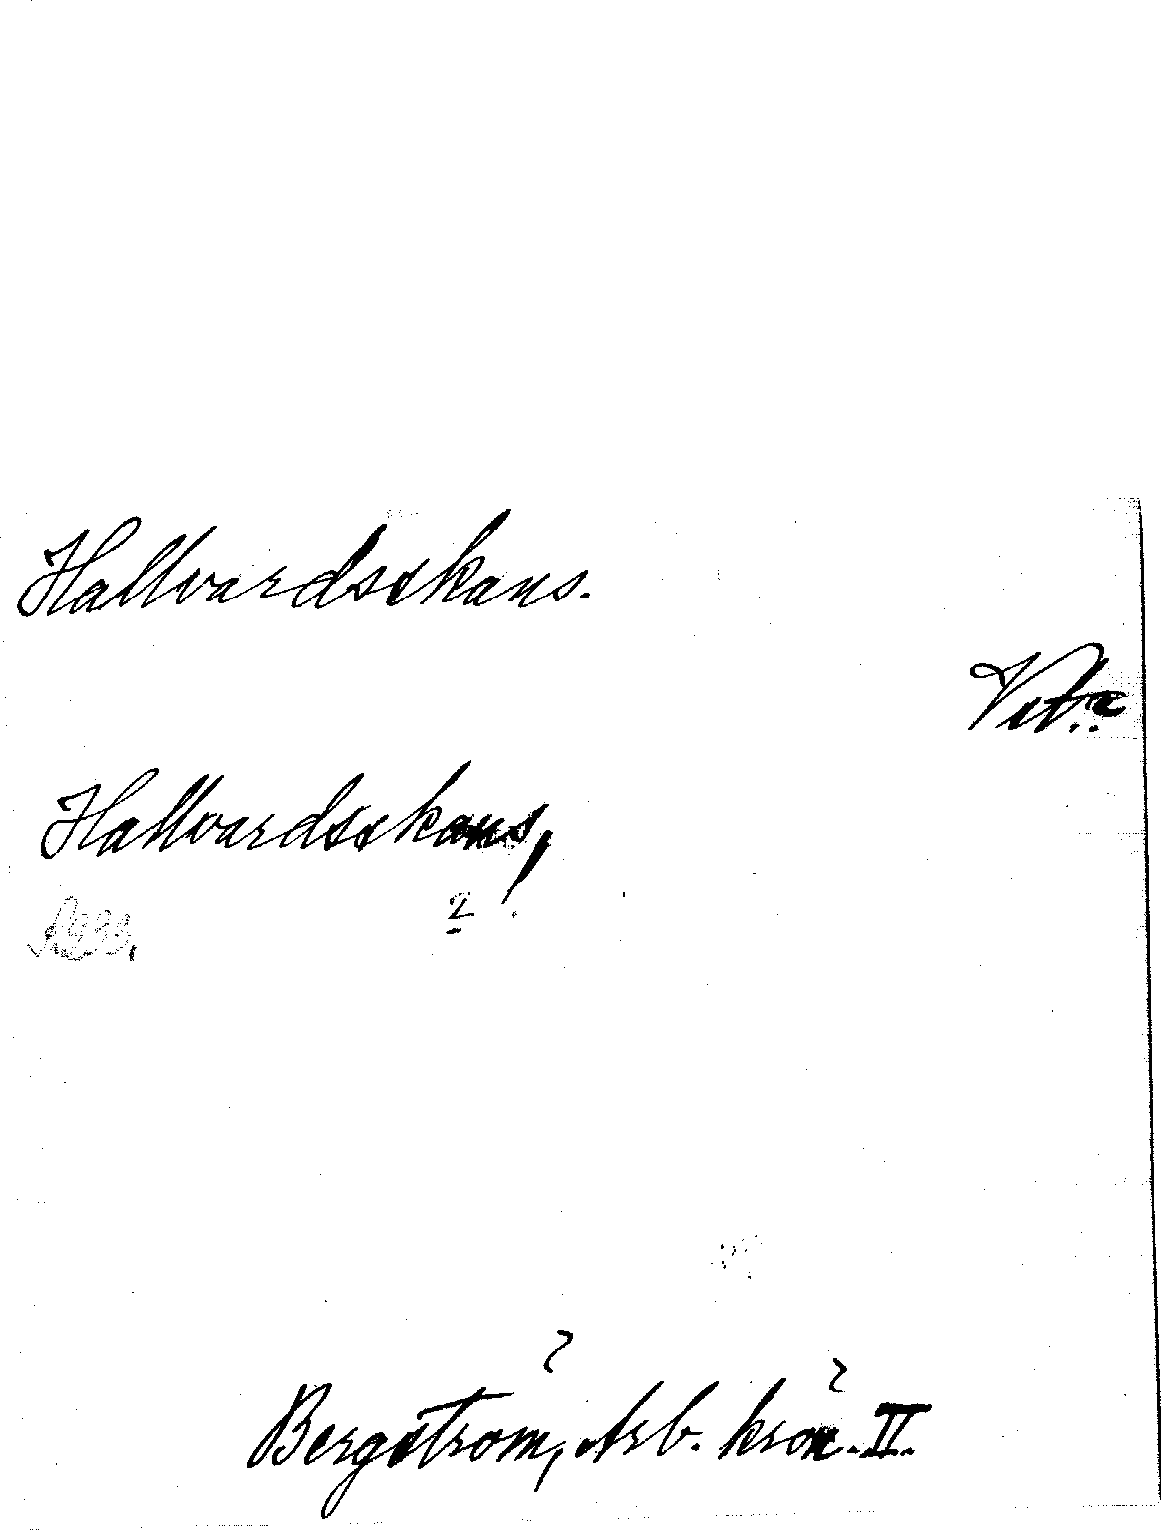 Hallvardsskans.
Hallvardsskans,
2
Bergström, Arb. krön. II.